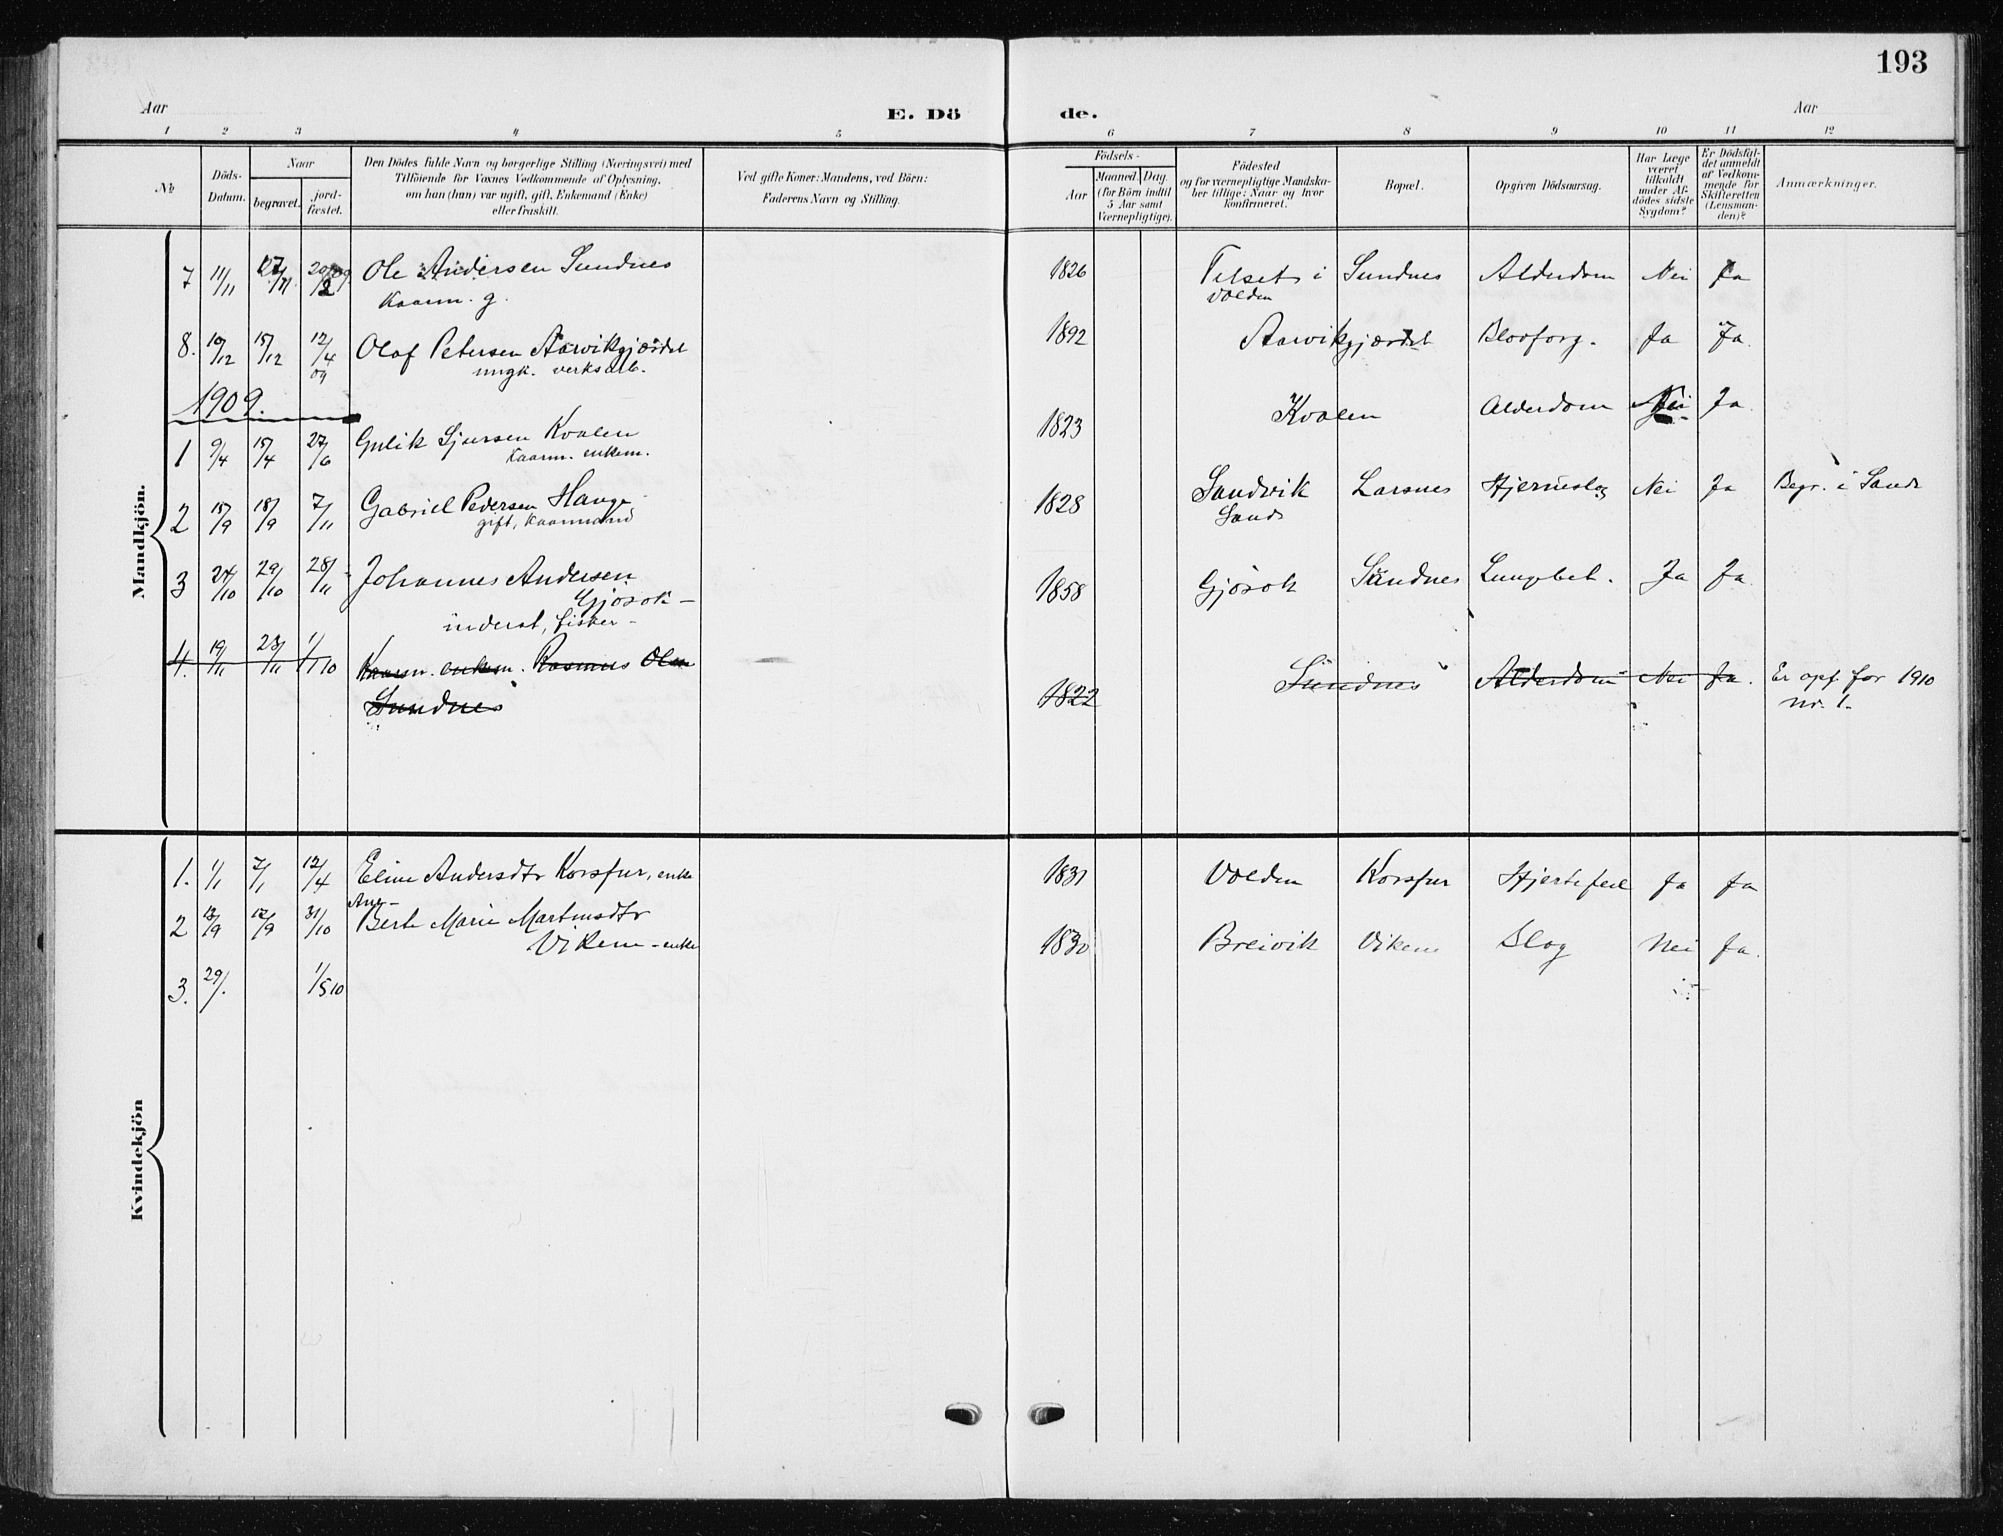 193
Aar E. Dö de. Aar
1 2 3 4 5 6 7 8 9 10 11 12
No
Döds-
Datum.
Naar
begravet.
jord-
fæstet.
Den Dödes fulde Navn og borgerlige Stilling (Næringsvei) med
Tilföiende for Voxnes Vedkommende af Oplysning,
om han (hun) var ugift, gift, Enkemand (Enke)
eller fraskilt.
Ved gifte Koner: Mandens, ved Börn:
Faderens Navn og Stilling.
Födsels-
Aar
Maaned. Dag.
(for Börn indtil
5 Aar samt
Værnepligtige).
Födested
og for værnepligtige Mandska-
ber tillige: Naar og hvor
konfirmeret.
Bopæl.
Opgiven Dödsaarsag.
Har Læge
været
tilkaldt
under Af-
dödes sidste
Sygdom?
Er Dödsfal-
det anmeldt
af Vedkom-
mende for
Skifteretten
(Lensman-
den)?
Anmærkninger.
Mandkjön.
7 11/11 Ole Andersen Sundnes 1826 i Sundnes Alderdom Nei Ja
Kaarm. g. Volden
8. 10/12 15/12 12/4 09 Olaf Petersen Aarvikgjærdet 1892 Aarvikgjærdet Blodforg. Ja Ja
ungk. verksarb.
1909.
1 9/4 15/4 27/6 Gulik Sjursen Kvalen 1823 Kvalen Alderdom Nei Ja
Kaarm. enkem.
2 15/9 18/9 7/11 Gabriel Pedersen Hauge 1828 Sandvik Larsnes Hjerneslag Nei Ja Begr. i Sande
gift, Kaarmand Sande
3 24/10 29/10 28/11 Johannes Andersen 1858 Sundnes Lungebet. Ja Ja
inderst, fisker -
4. 19/11 23/11 1/1 10 Kaarm. enkem. Rasmus Olsen 1822 Sundnes Alderdom Nei Ja. Er opf. for 1910
Sundnes nr. 1.
Kvindekjön
1. 1/1 7/1 12/4 Eline Andersdtr Korsfur, enke 1831 Volden Korsfur Hjertefeil Ja Ja
Ane-
2 13/9 31/10 Berte Marie Martinusdtr 1830 Breivik Viken Slag Nei Ja.
Viken - enke
3. 29/. 1/5 10